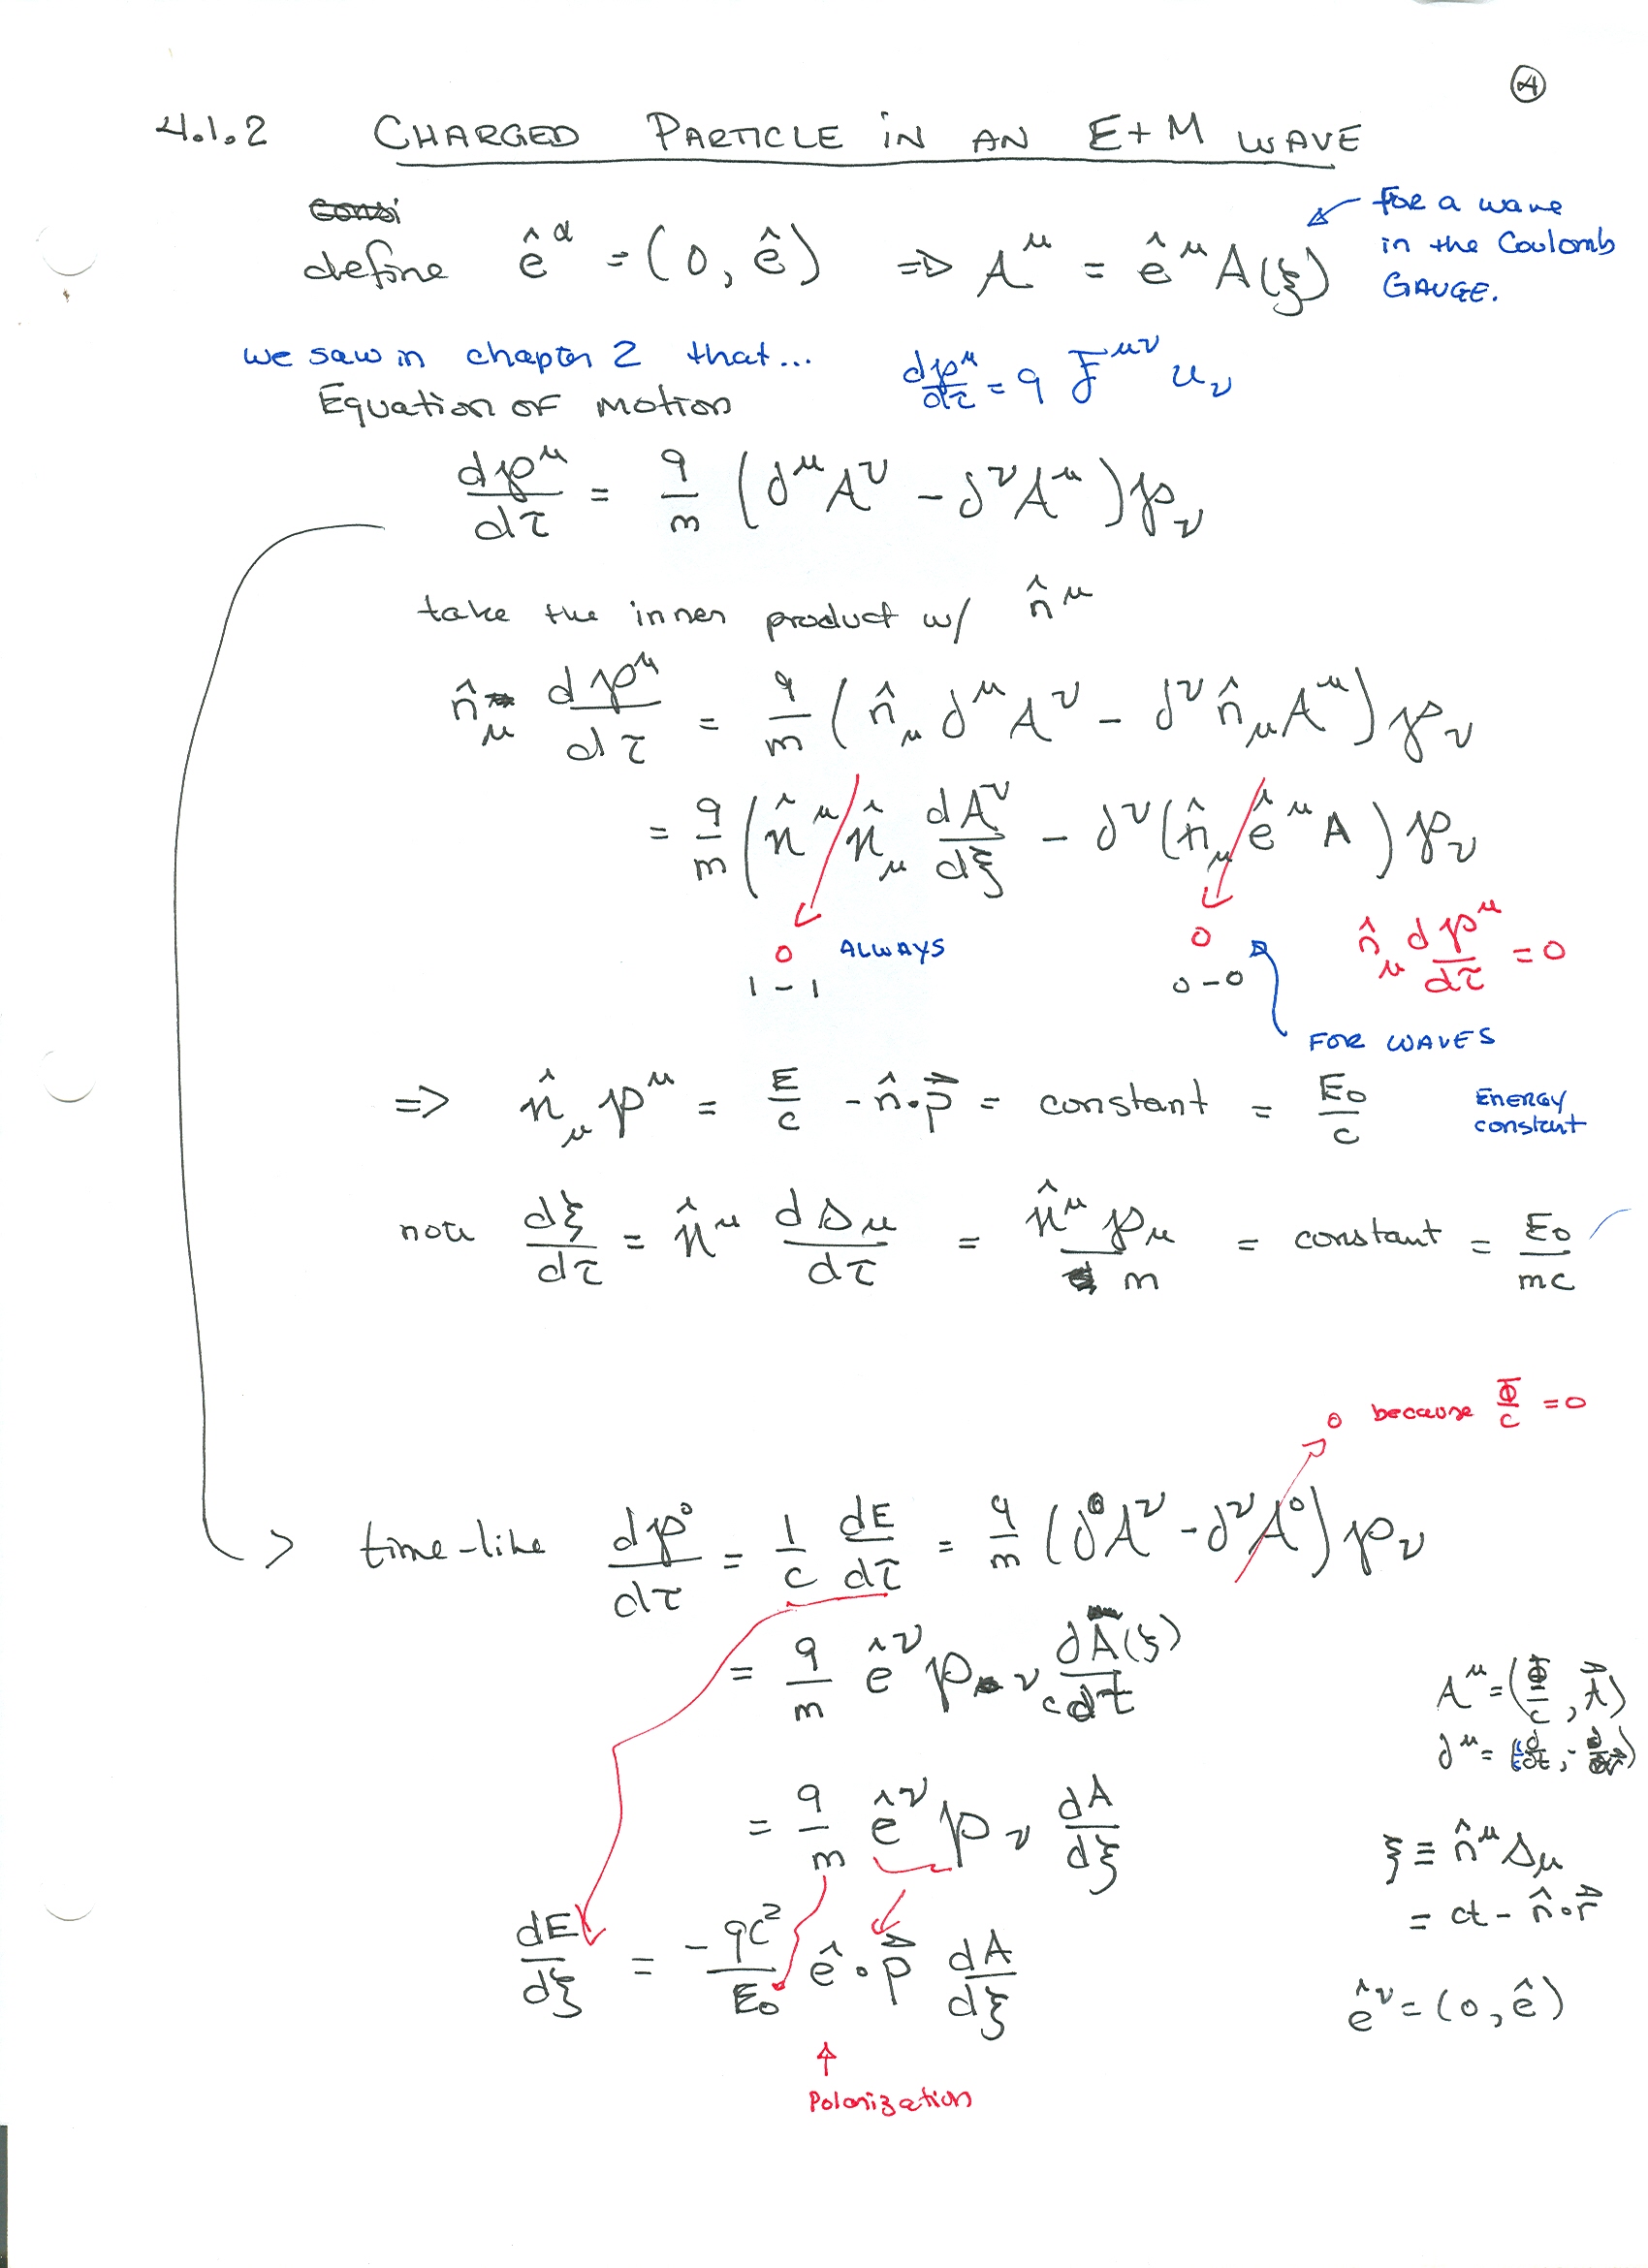 ④
4.1.2 CHARGED PARTICLE in AN E+M WAVE
define ê^α = (0, ê) ⇒ A^μ = ê^μ A(ξ)
For a wave
in the Coulomb
GAUGE.
we saw in chapter 2 that... dp^μ/dτ = q F^μν u_ν
Equation OF motion
dp^μ/dτ = q/m (∂^μ A^ν - ∂^ν A^μ) p_ν
take the inner product w/ n̂^μ
n̂_μ dp^μ/dτ = q/m (n̂_μ ∂^μ A^ν - ∂^ν n̂_μ A^μ) p_ν
= q/m (n̂^μ n̂_μ dA^ν/dξ - ∂^ν (n̂_μ ê^μ A) p_ν
0 ALWAYS 0 n̂_μ dp^μ/dτ = 0
1 - 1 0 - 0
FOR WAVES
=> n̂_μ p^μ = E/c - n̂·p⃗ = constant = E₀/c ENERGY
constant
note dξ/dτ = n̂^μ ds_μ/dτ = n̂^μ p_μ/m = constant = E₀/mc
0 because Φ/c = 0
time-like dp⁰/dτ = 1/c dE/dτ = q/m (∂⁰A^ν - ∂^ν A⁰) p_ν
= q/m ê^ν p_ν dA(ξ)/cdt
A^μ = (Φ/c, A⃗)
= q/m ê^ν p_ν dA/dξ
ξ ≡ n̂^μ s_μ
= ct - n̂·r⃗
dE/dξ = -qc²/E₀ ê·p⃗ dA/dξ
ê^ν = (0, ê)
Polarization